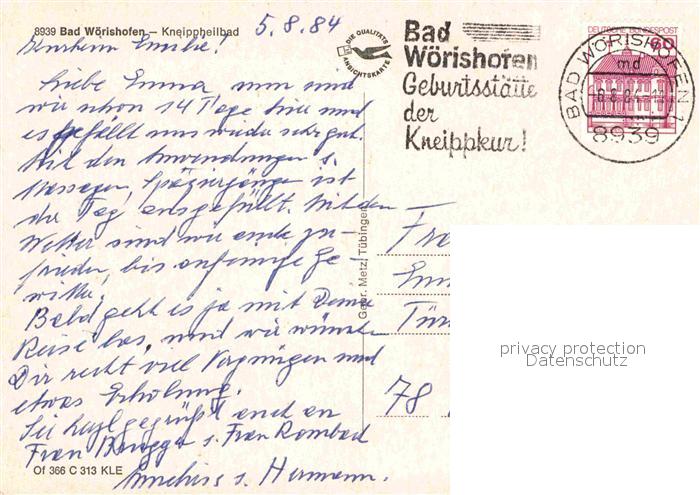 8939 Bad Wörishofen – Kneippheilbad
5.8.84
Emilie!
Liebe Emma, nun sind
wir schon 14 Tage hier und
es gefällt uns wieder sehr gut.
Mit den Anwendungen,
Massagen, Spaziergänge ist
der Tag ausgefüllt. Mit dem
Wetter sind wir auch zu-
frieden, bis auf Ge-
witter.
Bald geht es ja mit Deiner
Reise los, und wir wünschen
Dir recht viel Vergnügen und
etwas Erholung.
Sei herzl. gegrüßt auch an
Frau u. Frau Rombach
u. Hermann.
Of 366 C 313 KLE
DIE QUALITÄTS
ANSICHTSKARTE
Gebr. Metz, Tübingen
Bad
Wörishofen
Geburtsstätte
der
Kneippkur!
DEUTSCHE BUNDESPOST
60
BAD WÖRISHOFEN 1
md
8939
Fra
Em
Tür
78
privacy protection
Datenschutz